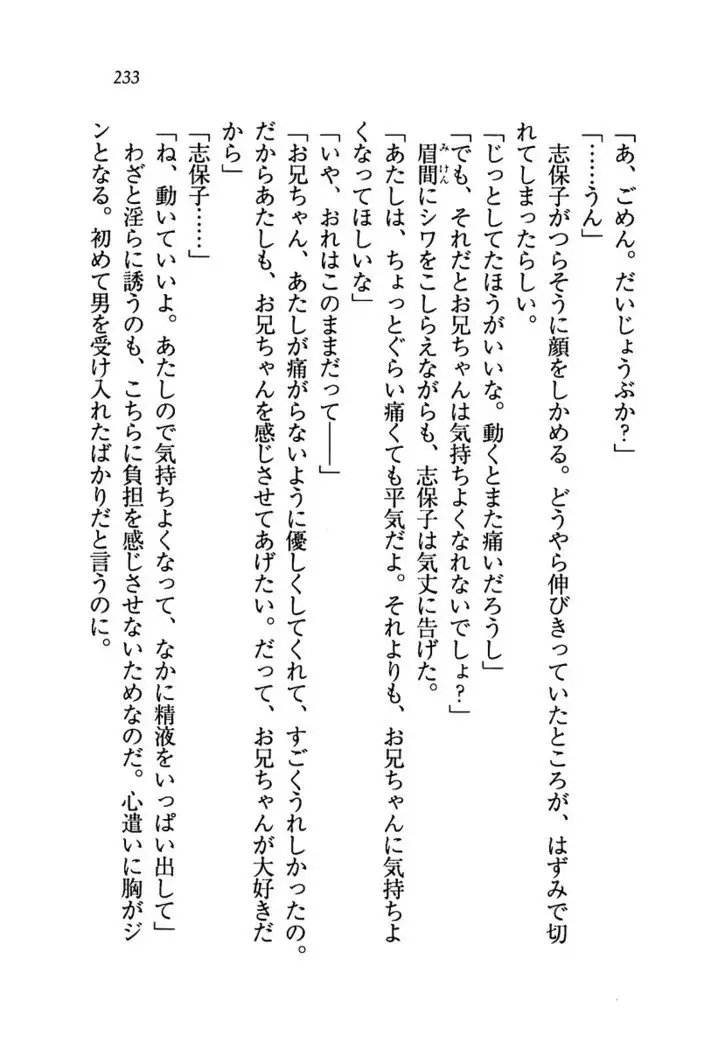 233
「あ、ごめん。だいじょうぶか？」
「……うん」
　志保子がつらそうに顔をしかめる。どうやら伸びきっていたところが、はずみで切
れてしまったらしい。
「じっとしてたほうがいいな。動くとまた痛いだろうし」
「でも、それだとお兄ちゃんは気持ちよくなれないでしょ？」
　眉間にシワをこしらえながらも、志保子は気丈に告げた。
「あたしは、ちょっとぐらい痛くても平気だよ。それよりも、お兄ちゃんに気持ちよ
くなってほしいな」
「いや、おれはこのままだって――」
「お兄ちゃん、あたしが痛がらないように優しくしてくれて、すごくうれしかったの。
だからあたしも、お兄ちゃんを感じさせてあげたい。だって、お兄ちゃんが大好きだ
から」
「志保子……」
「ね、動いていいよ。あたしので気持ちよくなって、なかに精液をいっぱい出して」
　わざと淫らに誘うのも、こちらに負担を感じさせないためなのだ。心遣いに胸がジ
ンとなる。初めて男を受け入れたばかりだと言うのに。